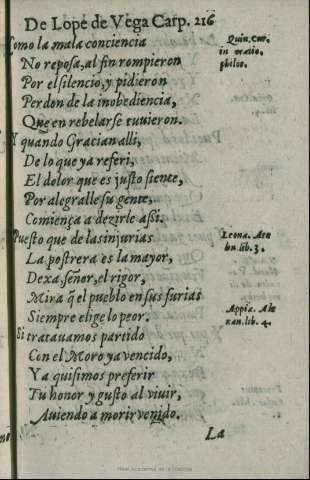 De Lope de Vega Carp. 216
Como la mala conciencia
No reposa, al fin rompieron
Por el silencio, y pidieron
Perdon de la inobediencia,
Que en rebelarse tuuieron.
Y quando Gracian alli,
De lo que ya referi,
El dolor que es justo siente,
Por alegralle su gente,
Comiença a dezirle assi.
Puesto que de las injurias
La postrera es la mayor,
Dexa, señor, el rigor,
Mira q̃ el pueblo en sus furias
Siempre elige lo peor.
Si tratauamos partido
Con el Moro ya vencido,
Ya quisimos preferir
Tu honor y gusto al viuir,
Auiendo a morir venido.
La
Quin. Cur.
in oratio.
philos.
Leona. Are
bn. lib. 3.
Appia. Ale
xan. lib. 4.
Real Academia de la Historia